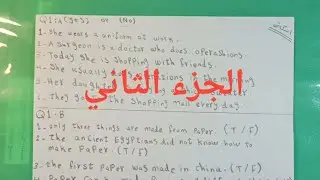 Q1:A (yes) or (No)
1. She wears a uniform at work.
2. A surgeon is a doctor who does operashions.
3. Today she is shopping with friends.
4. She usually is in the morning
5. Her daughter
6. They the shopping mall every day.
الجزء الثاني
Q1-B
1. only three things are made from paper. (T/F)
2. the ancient Egyptians did not know how to
make paper. (T/F)
3. the first paper was made in china. (T/F)